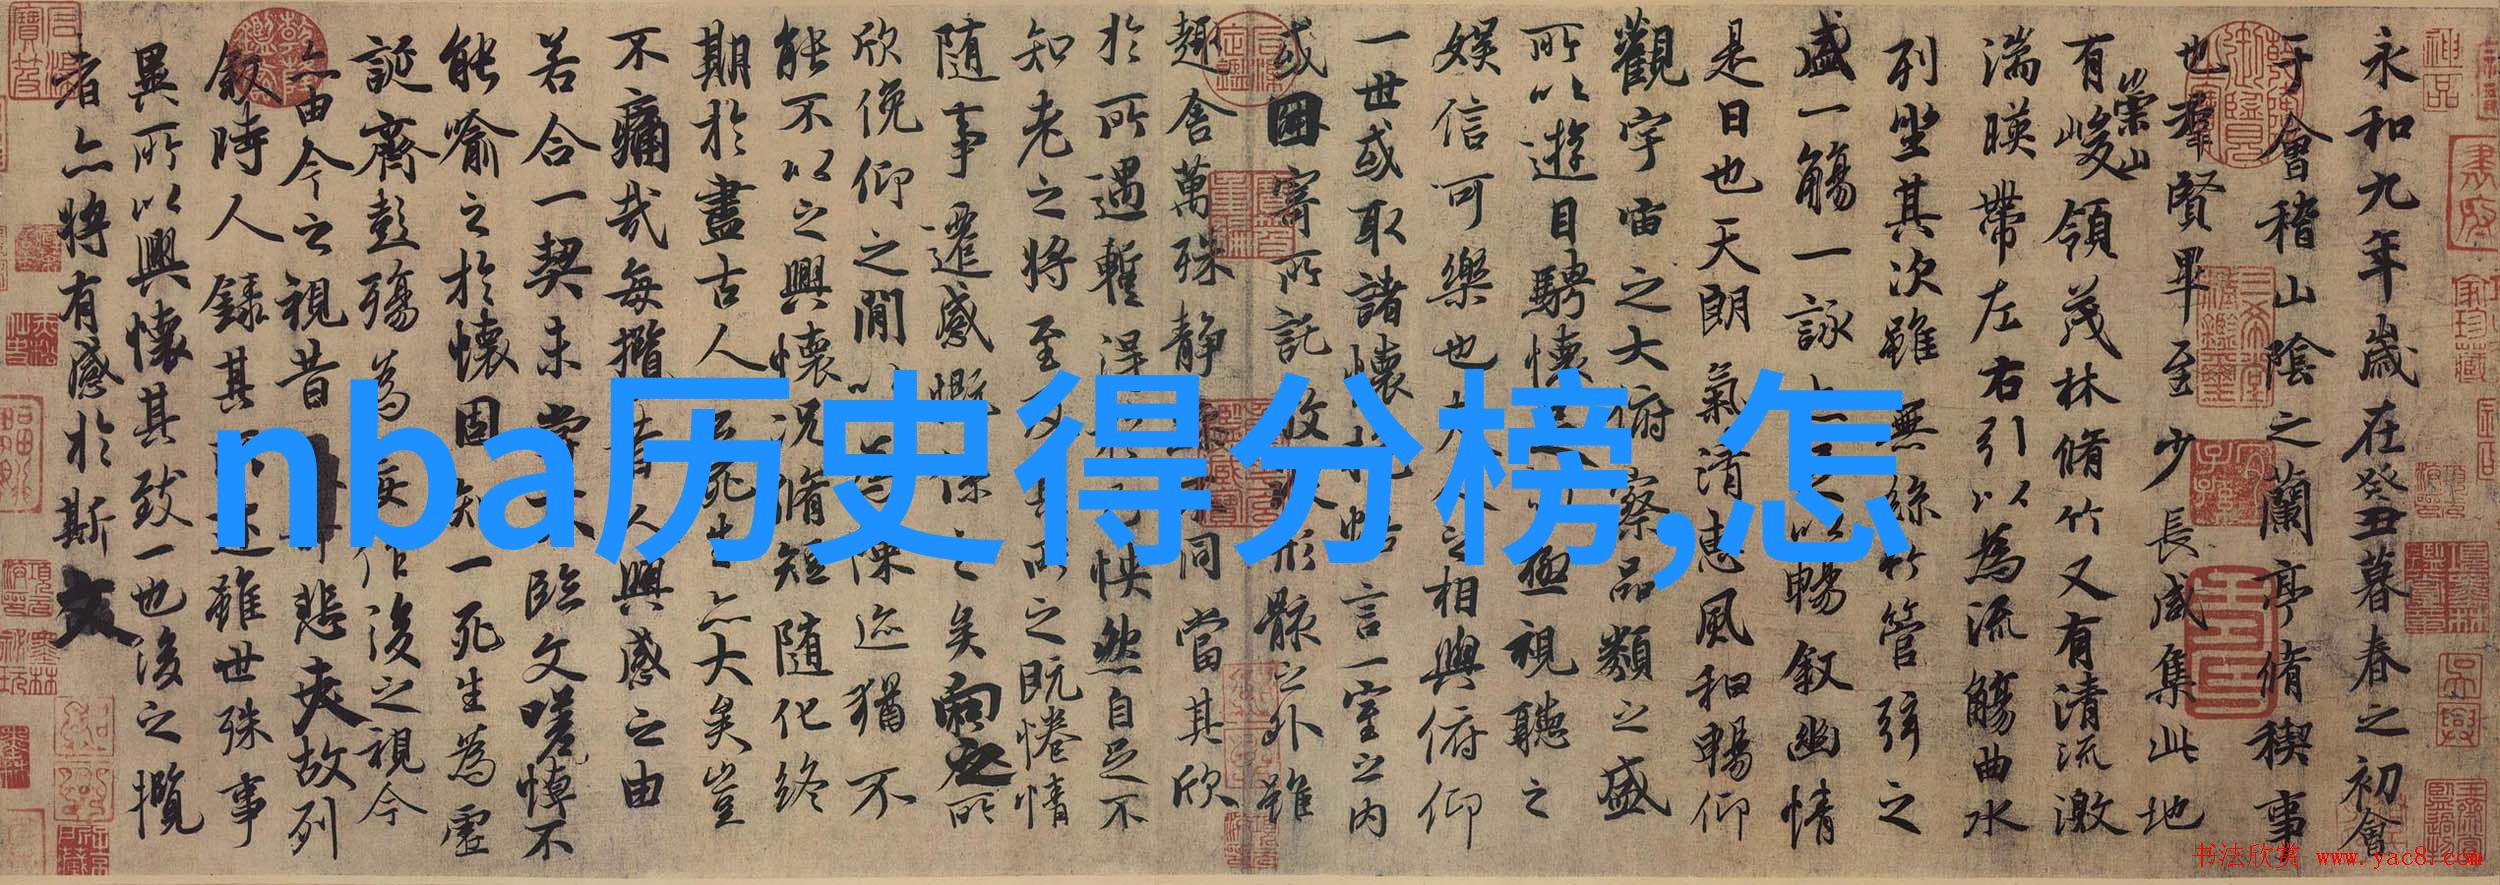 永和九年歲在癸丑暮春之初會
于會稽山陰之蘭亭脩稧事
也羣賢畢至少長咸集此地
有崇山峻領茂林脩竹又有清流激
湍暎帶左右引以為流觴曲水
列坐其次雖無絲竹管弦之
盛一觴一詠亦足以暢敘幽情
是日也天朗氣清惠風和暢仰
觀宇宙之大俯察品類之盛
所以遊目騁懷足以極視聽之
娛信可樂也夫人之相與俯仰
一世或取諸懷抱悟言一室之內
或因寄所託放浪形骸之外雖
趣舍萬殊靜躁不同當其欣
於所遇蹔得於己怏然自足不
知老之將至及其所之既惓情
隨事遷感慨係之矣向之所
欣俛仰之閒以為陳迹猶不
能不以之興懷況脩短隨化終
期於盡古人云死生亦大矣豈
不痛哉每攬昔人興感之由
若合一契未嘗不臨文嗟悼不
能喻之於懷固知一死生為虛
誕齊彭殤為妄作後之視今
亦由今之視昔悲夫故列
敘時人錄其所述雖世殊事
異所以興懷其致一也後之攬
者亦將有感於斯文
nba历史得分榜,怎
书法欣赏 www.yac8.com